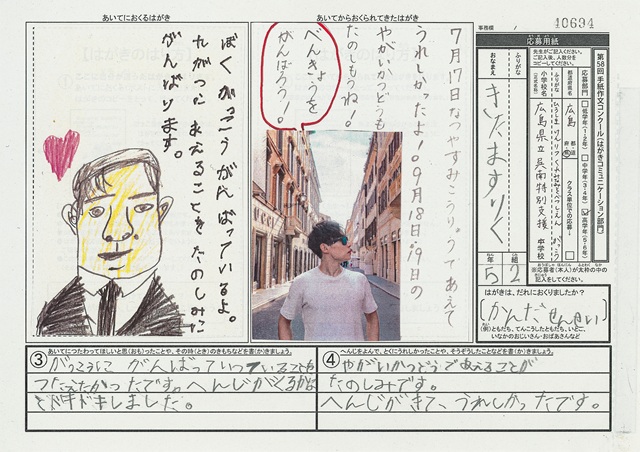 あいてにおくるはがき
ぼくがっこうがんばっているよ。
れがつにあえることをたのしみに
がんばります。
あいてからおくられてきたはがき
7月17日なつやすみこうりゅうであえて
うれしかったよ!。9月18日.19日の
やがいかつどうも
たのしもうね!。
べんきょうを
がんばろう!。
事務欄
40694
応募用紙
第58回手紙作文コンクール(はがきコミュニケーション部門)
先生がご記入ください。
ご記入後、人数分を
コピーしてください。
応募部門
低学年(1・2年)
中学年(3・4年)
高学年(5・6年)
都道府県名
広島
都
道
府
県
クラス単位での応募
ふりがな
小学校名
(正式名称)
広島県立呉南特別支援
中学校
ふりがな
おなまえ
きたますりく
5年
2組
※応募者(本人)が太枠の中の
記入をしてください。
はがきは、だれにおくりましたか?
(かんだせんせい)
(例)ともだち、てんこうしたともだち、いとこ、
いなかのおじいさん・おばあさんなど
③
あいてにつたわってほしいと思(おも)ったことや、その時(とき)のきもちなどを書(か)きましょう。
がっこうにがんばっていっていることを
つたえたかったです。へんじがくるかな
とドキドキしました。
④
へんじをよんで、とくにうれしかったことや、そうぞうしたことなどを書(か)きましょう。
やがいかつどうであえることが
たのしみです。
へんじがきて、うれしかったです。